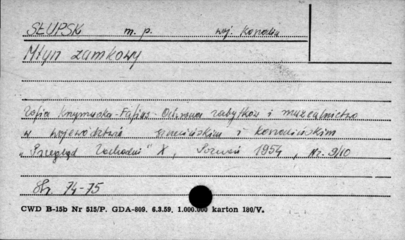 SŁUPSK m. p. woj. Koszalin
Młyn zamkowy
Zofia Krzymuska-Fafius - Ochrona zabytków i muzealnictwo
w województwie szczecińskim i koszalińskim
"Przegląd Zachodni" X, Poznań 1954, Nr. 9/10
Str. 74-75
CWD B-15b Nr 515/P. GDA-809. 6.3.59. 1.000.000 karton 180/V.